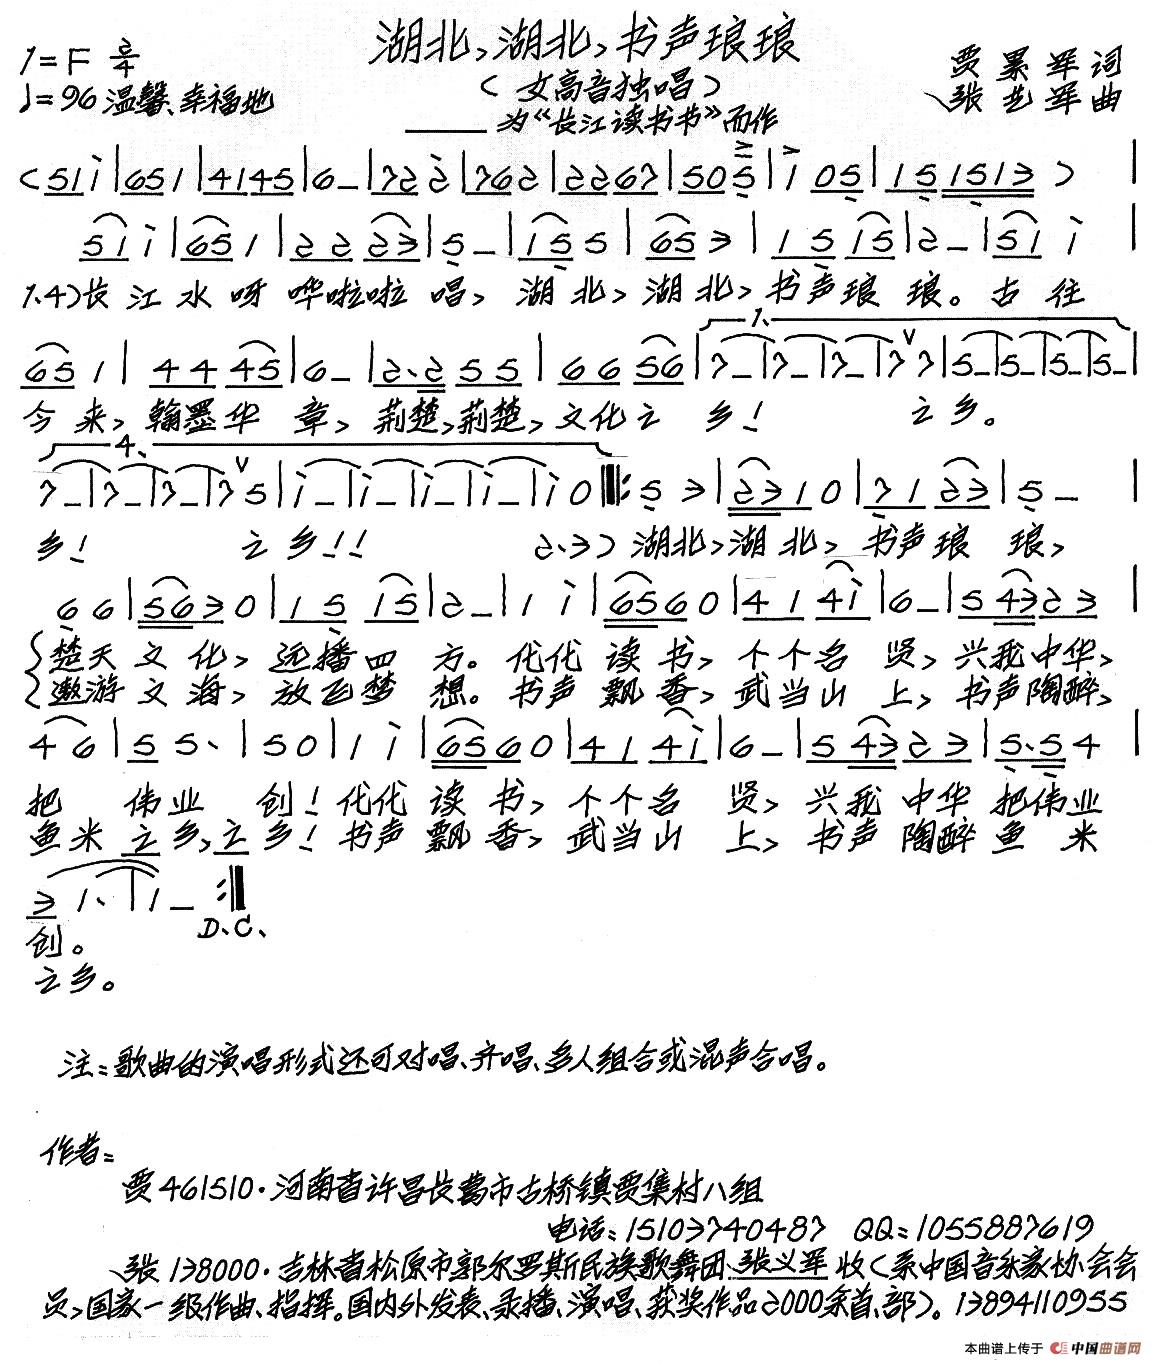 湖北,湖北,书声琅琅
1=F 2/4
(女高音独唱)
♩=96 温馨、幸福地
——为“长江读书节”而作
贾累军 词
张艺军 曲
(51i|651|4145|6-|722|762|2267|505|i05|151513)|
51i|651|2223|5-|155|653|1515|2-|51i|
1.4)长江水呀哗啦啦唱,湖北,湖北,书声琅琅。古往
651|4445|6-|2.255|6656|1.7-|7-|7-|77|5-|5-|5-|5-|
今来,翰墨华章,荆楚,荆楚,文化之乡!之乡。
4.
7-|7-|7-|75|i-|i-|i-|i-|i0:53|2310|7123|5-|
乡!之乡!!2.3)湖北,湖北,书声琅琅,
66|5630|1515|2-|1i|6560|414i|6-|54323|
楚天文化,远播四方。代代读书,个个名贤,兴我中华,
遨游文海,放飞梦想。书声飘香,武当山上,书声陶醉,
46|55.|50|1i|6560|414i|6-|54323|5.54|
把伟业创!代代读书,个个名贤,兴我中华把伟业
鱼米之乡,之乡!书声飘香,武当山上,书声陶醉鱼米
31.|1-:D.C.
创。
之乡。
注:歌曲的演唱形式还可对唱、齐唱、多人组合或混声合唱。
作者:
贾461510·河南省许昌长葛市古桥镇贾集村八组
电话:15103740487 QQ:1055887619
张138000·吉林省松原市郭尔罗斯民族歌舞团、张义军收(系中国音乐家协会会
员,国家一级作曲、指挥。国内外发表、录播、演唱、获奖作品2000余首、部)。13894110955
本曲谱上传于 中国曲谱网